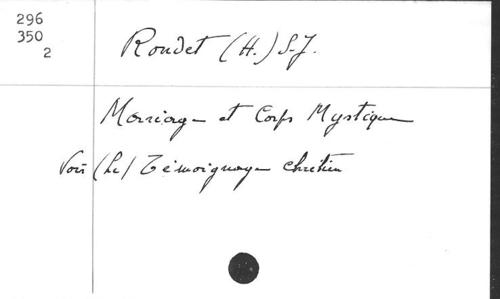 296
350
2
Rondet (H.) S.J.
Marriage et Corps Mystique
Voir (Le) Témoignage chrétien